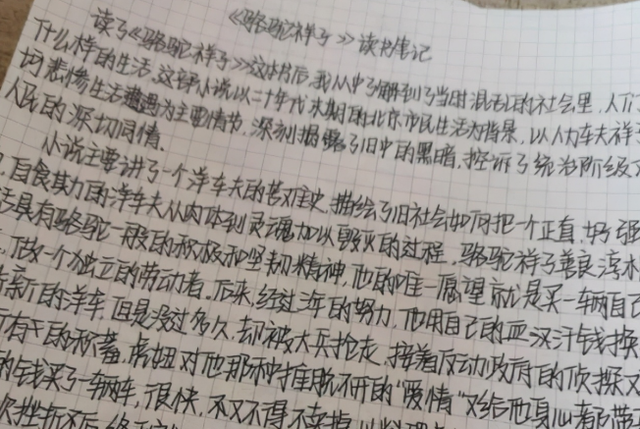 《骆驼祥子》读书笔记
读了《骆驼祥子》这本书后,我从中了解到了当时混乱的社会里,人们
什么样的生活,这部小说以二十年代末期的北京市民生活为背景,以人力车夫祥子
坷悲惨生活遭遇为主要情节,深刻揭露了旧中国的黑暗,控诉了统治阶级
人民的深切同情.
小说主要讲了一个洋车夫的苦难史,描绘了旧社会如何把一个正直,好强
,自食其力的洋车夫从肉体到灵魂加以毁灭的过程,骆驼祥子善良淳朴
活具有骆驼一般的积极和坚韧精神,他的唯一愿望就是买一辆自己
,做一个独立的劳动者.后来,经过三年的努力,他用自己的血汗钱换
新的洋车,但是没过多久,却被大兵抢走,接着反动政府的侦探又
所有的积蓄,虎妞对他那种推脱不开的“爱情”又给他身心都带
的钱买了一辆车,很快,不又不得不卖掉以料理
次挫折后,终